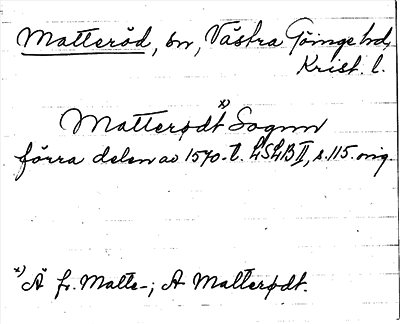 Matteröd, sn, Västra Göinge hd,
Krist. l.
Matterødt x) Sognn
förra delen av 1570-t. LSLB II, s. 115. orig.
x) Ä fr. Matte-; A Matterødt.